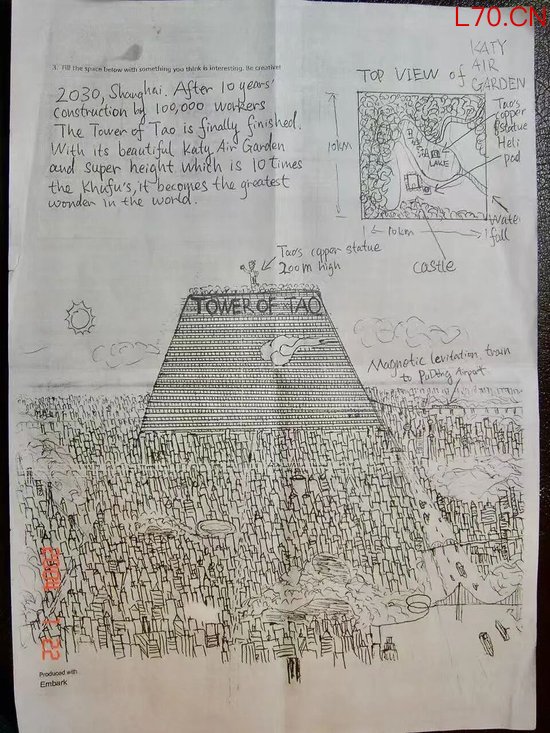 L70.CN
3. Fill the space below with something you think is interesting. Be creative!
2030, Shanghai. After 10 years'
construction by 100,000 workers
The Tower of Tao is finally finished.
With its beautiful Katy Air Garden
and super height which is 10 times
the Khufu's, it becomes the greatest
wonder in the world.
TOP VIEW of
KATY
AIR
GARDEN
Tao's
copper
statue
Heli
pad
LAKE
10km
10km
Water
fall
castle
Tao's copper statue
200m high
TOWER OF TAO
Magnetic levitation train
to PuDong Airport
Produced with
Embark